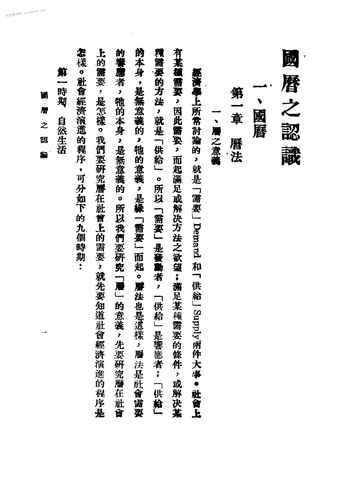 國曆之認識
一、國曆
第一章 曆法
一、曆之意義
經濟學上所常討論的，就是「需要」Demand 和「供給」Supply兩件大事。社會上
有某種需要，因此需要，而起滿足或解決方法之欲望；滿足某種需要的條件，或解決某
種需要的方法，就是「供給」。所以「需要」是發動者，「供給」是響應者；「供給」
的本身，是無意義的，牠的意義，是緣「需要」而起。曆法也是這樣，曆法是社會需要
的響應者，牠的本身，是無意義的。所以我們要研究「曆」的意義，先要研究曆在社會
上的需要，是怎樣。我們要研究曆在社會上的需要，就先要知道社會經濟演進的程序是
怎樣。社會經濟演進的程序，可分如下的九個時期：
第一時期，自然生活
國曆之認識
一